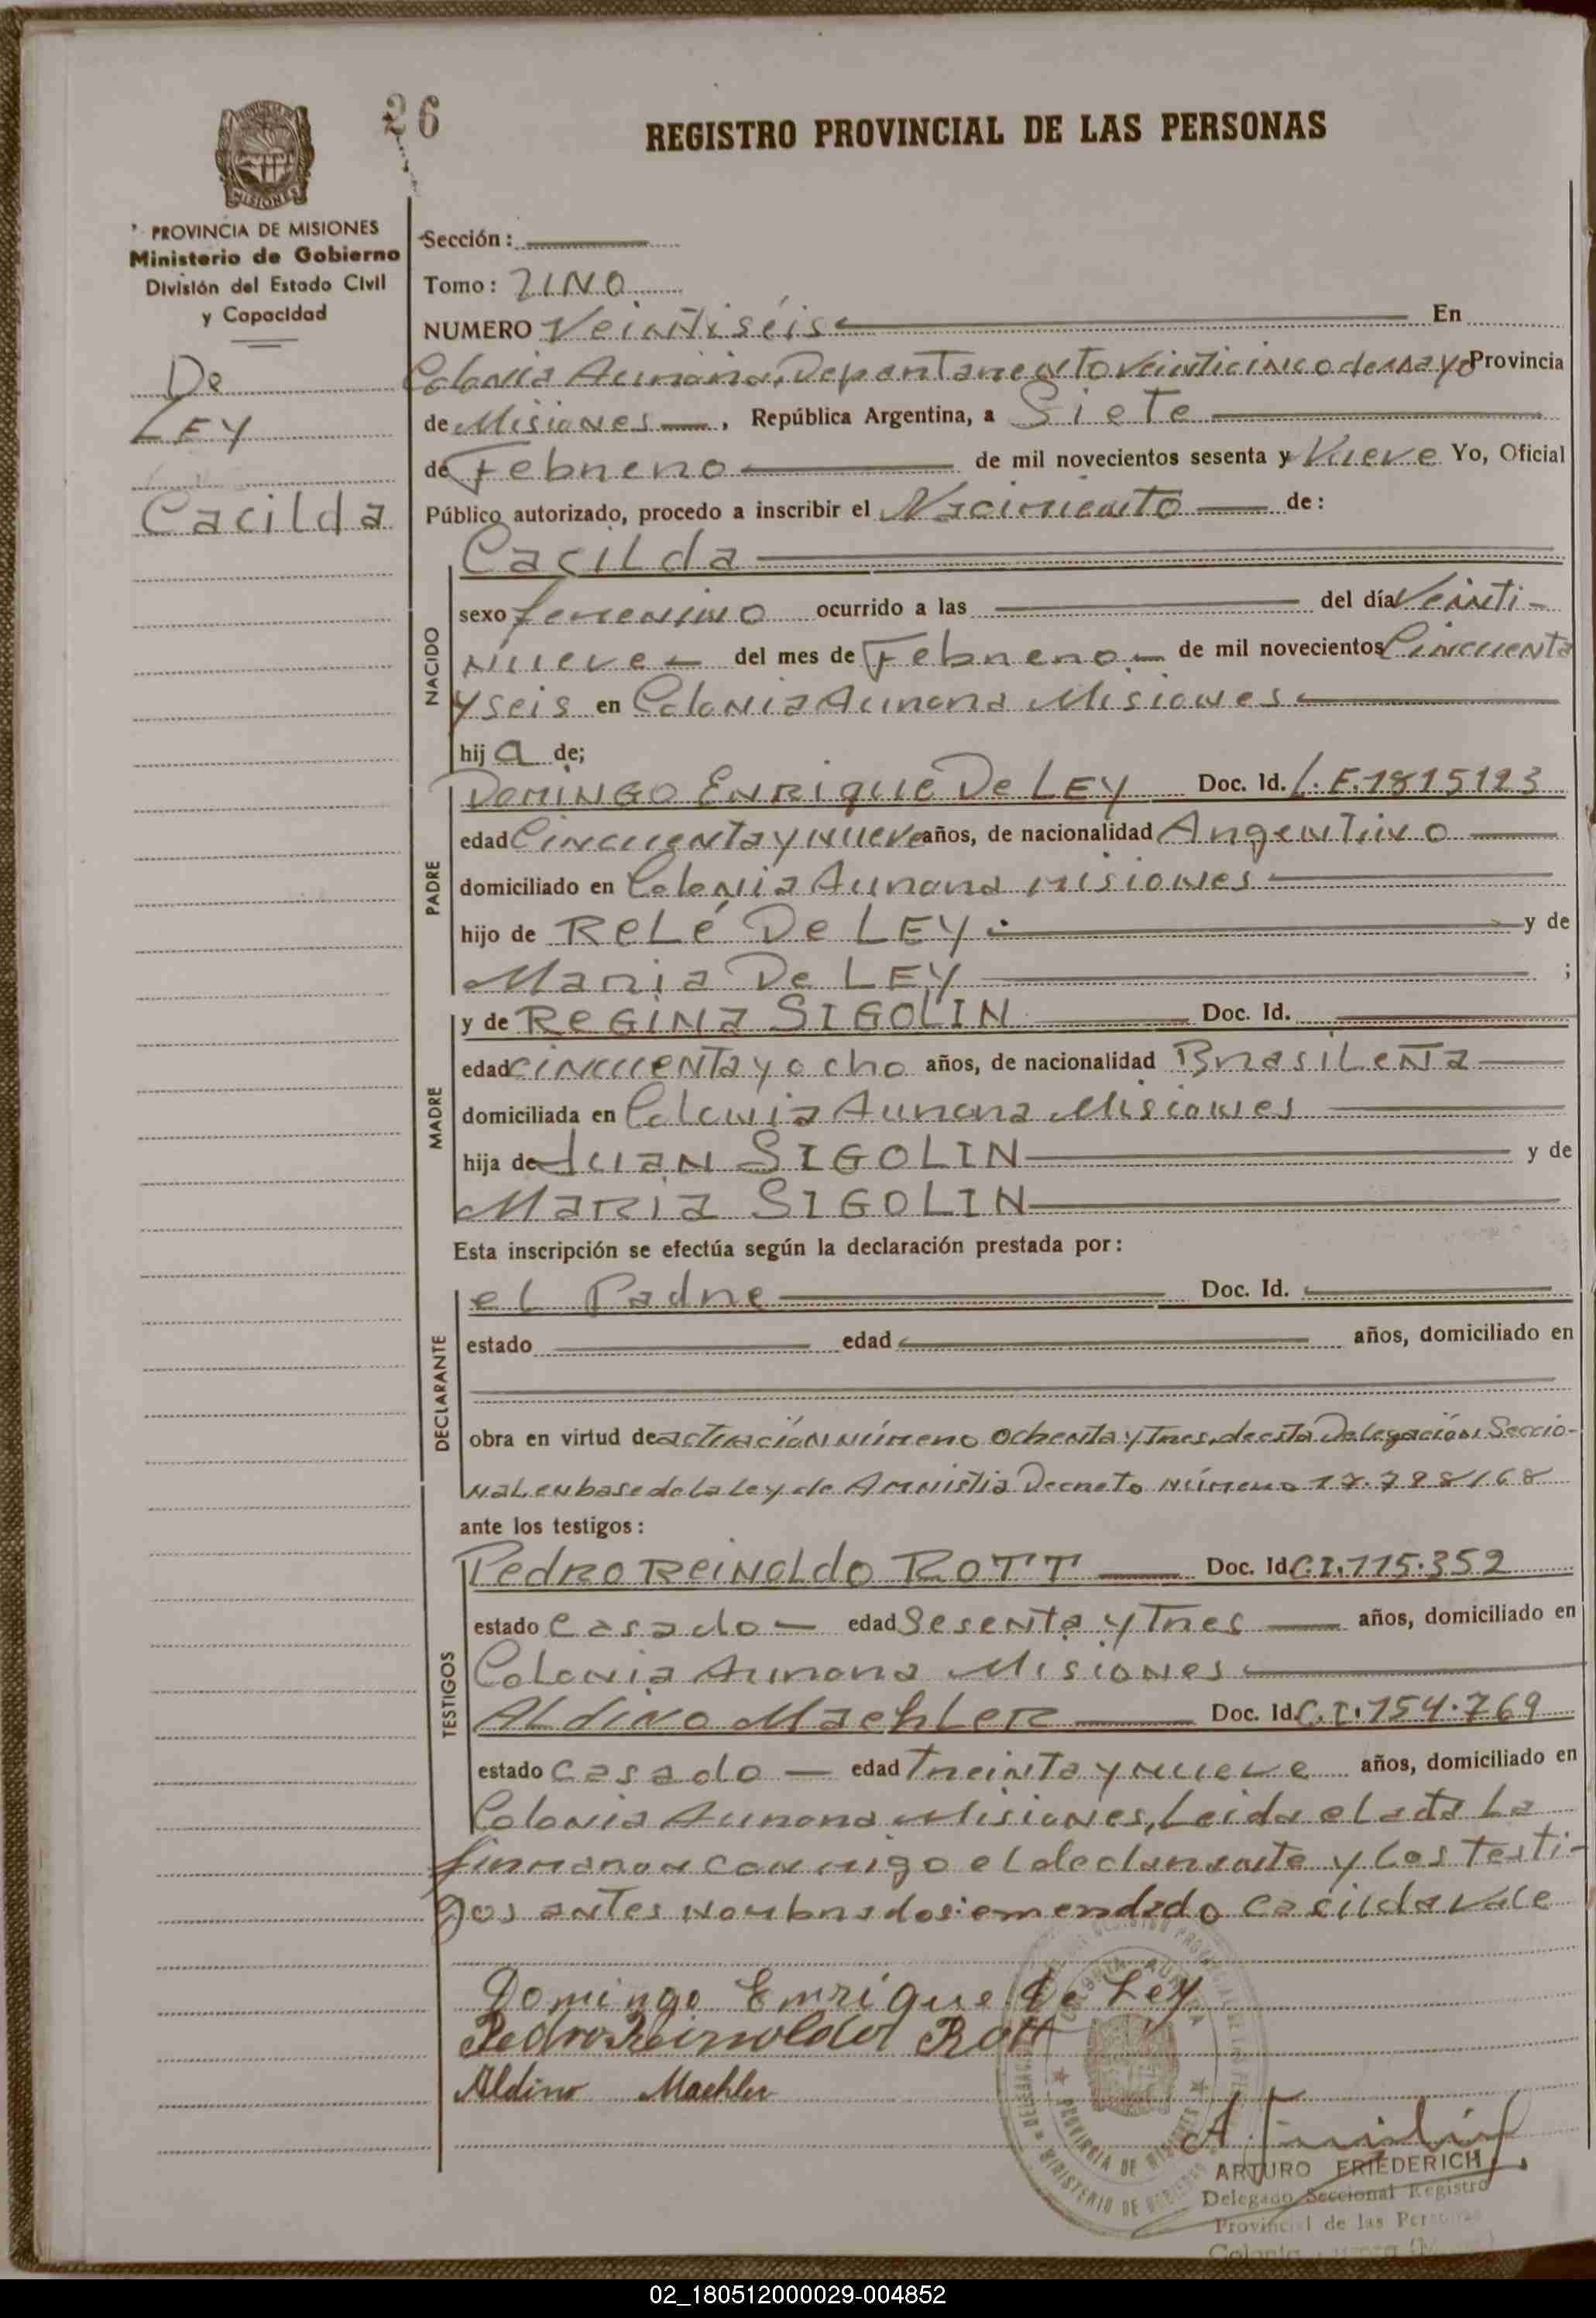 26
REGISTRO PROVINCIAL DE LAS PERSONAS
MISIONES
PROVINCIA DE MISIONES
Ministerio de Gobierno
División del Estado Civil
y Capacidad
De
LEY
Cacilda
Sección:
Tomo: UNO
NUMERO Veintiséis En
Colonia Aurora, Departamento Veinticinco de mayo Provincia
de Misiones, República Argentina, a Siete
de Febrero de mil novecientos sesenta y Nueve Yo, Oficial
Público autorizado, procedo a inscribir el Nacimiento de:
Cacilda
NACIDO
sexo femenino ocurrido a las del día Veinti-
nueve del mes de Febrero de mil novecientos Cincuenta
y seis en Colonia Aurora Misiones
hija de;
PADRE
DOMINGO ENRIQUE De LEY Doc. Id. L.E.1815123
edad Cincuenta y nueve años, de nacionalidad Argentino
domiciliado en Colonia Aurora Misiones
hijo de RELÉ De LEY y de
Maria De LEY ;
MADRE
y de REGINA SIGOLIN Doc. Id.
edad cincuenta y ocho años, de nacionalidad Brasileña
domiciliada en Colonia Aurora Misiones
hija de Juan SIGOLIN y de
Maria SIGOLIN
Esta inscripción se efectúa según la declaración prestada por:
DECLARANTE
el Padre Doc. Id.
estado edad años, domiciliado en
obra en virtud de actuación número ochenta y tres, de esta Delegación Seccio-
nal en base de la Ley de Amnistia Decreto número 17.788/68
ante los testigos:
TESTIGOS
Pedro Reinoldo ROTT Doc. Id C.I.115.352
estado casado edad Sesenta y Tres años, domiciliado en
Colonia Aurora Misiones
Aldino Maehler Doc. Id. C.I.154.769
estado casado edad Treinta y nueve años, domiciliado en
Colonia Aurora Misiones, Leida el acta La
firmaron conmigo el declarante y los testi-
gos antes nombrados: emendado cacilda vale
Domingo Enrique De Ley
Pedro Reinoldo Rott
Aldino Maehler
COLONIA AURORA
PROVINCIA DE MISIONES
MINISTERIO DE GOBIERNO
ARTURO FRIEDERICH
Delegado Seccional Registro
Provincial de las Personas
Colonia
02_180512000029-004852